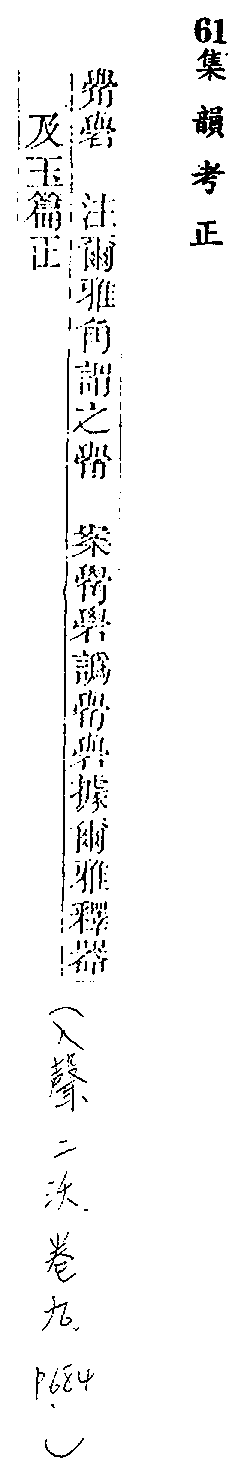 61集韻考正
觷 注爾雅角謂之觷 案觷譌據爾雅釋器
及玉篇正
(入聲二沃卷九 P684)